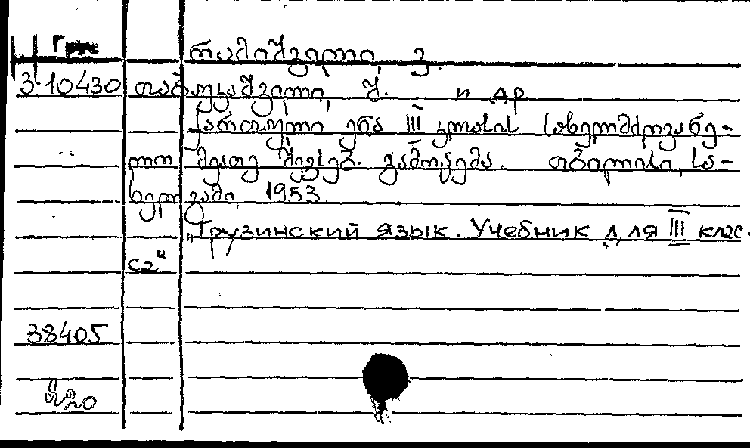 Груз
რამიშვილი, ვ.
3-10430 თაბუკაშვილი, შ. и др
ქართული ენა III კლასის სახელმძღვანე-
ლო მეთ შევსებ. გამოცემა. თბილისი, სა-
ხელგამი, 1953.
"Грузинский язык. Учебник для III клас.
са"
38405